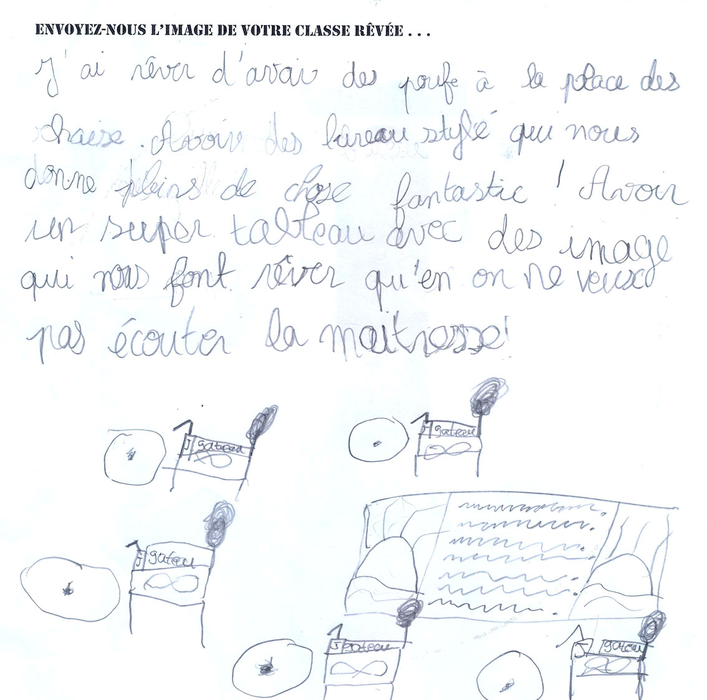 ENVOYEZ-NOUS L'IMAGE DE VOTRE CLASSE RÊVÉE . . .
J'ai rêver d'avoir des poufs à la place des
chaise. Avoir des bureau stylé qui nous
donne pleins de chose fantastic ! Avoir
un super tableau avec des image
qui nous font rêver qu'en on ne veux
pas écouter la maitresse!
gateau gateau
gateau
gateau gateau